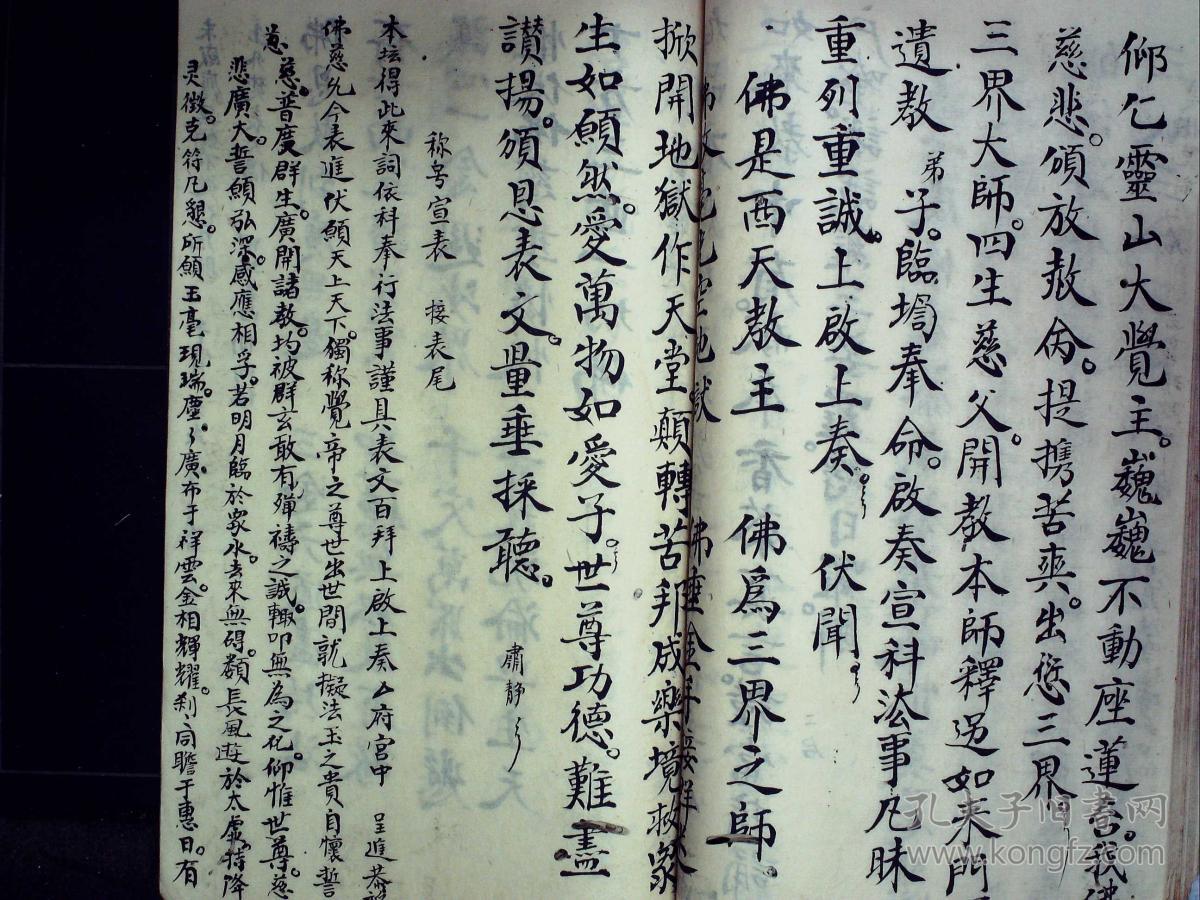 仰乞靈山大覺主。巍巍不動座蓮台。我佛
慈悲。頒放赦。提携苦爽。出您三界
三界大師。四生慈父。開教本師釋迦如來門
遺教弟子。臨壇奉命。啟奏宣科法事凡昧
重列重誠。上啟上奏。伏聞。
佛是西天教主 佛為三界之師。
掀開地獄作天堂顛轉苦拜成樂境救衆
生如願然。愛萬物如愛子。世尊功德。難盡
讃揚。頒恩表文。量垂採聽。 肅静
称号宣表 接表尾
本坛得此來詞依科奉行法事謹具表文百拜上啟上奏厶府宮中 呈進恭
佛慈允今表進伏願天上天下。獨称覺帝之尊世出世間就擬法王之貴自懷誓
慈。普度群生。廣開諸教。均被群玄敢有殫禱之誠。輙叩無為之化。仰惟世尊。慈
悲廣大。誓願弘深。感應相孚。若明月臨於衆水。去來無碍。類長風遊於太虚。特降
灵徵。克符凡懇。所願玉毫現瑞。塵々廣布于祥雲。金相輝耀。刹々同瞻于惠日。有
孔夫子旧书网
www.kongfz.com